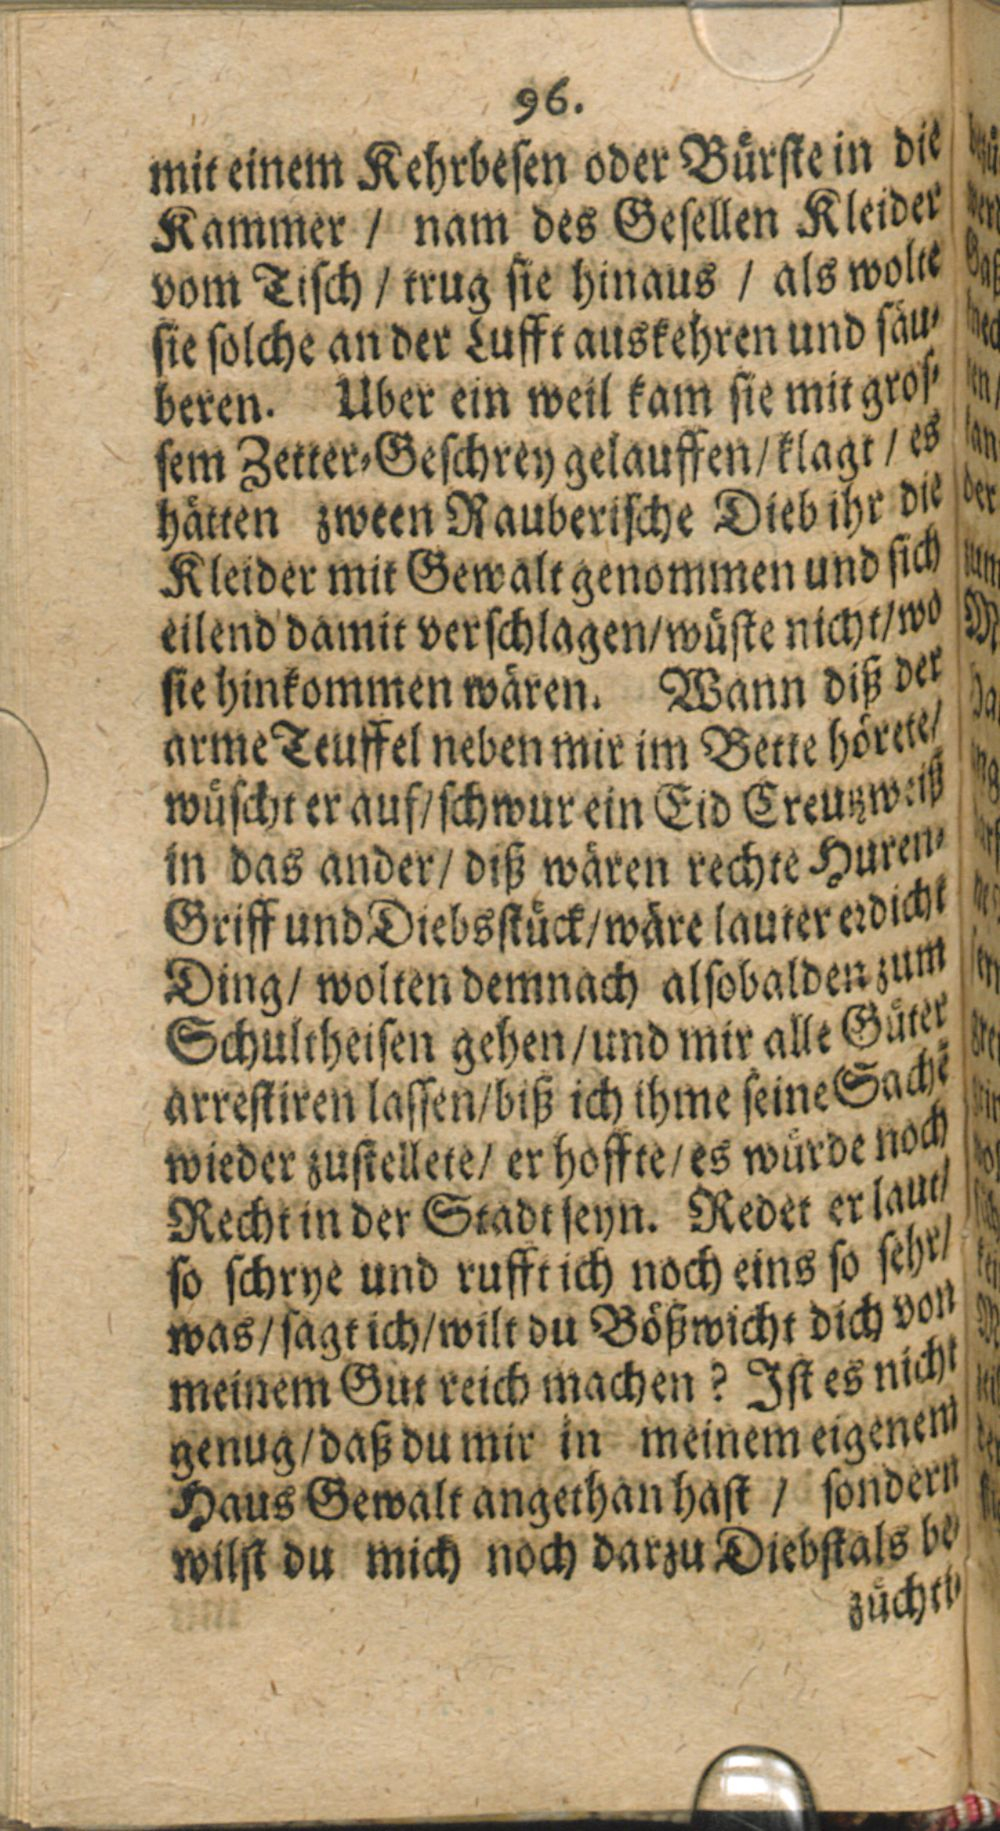 96.
mit einem Kehrbesen oder Bürste in die
Kammer / nam des Gesellen Kleider
vom Tisch / trug sie hinaus / als wolte
sie solche an der Lufft auskehren und säu-
beren. Uber ein weil kam sie mit gros-
sem Zetter-Geschrey gelauffen / klagt / es
hätten zween Rauberische Dieb ihr die
Kleider mit Gewalt genommen und sich
eilend damit verschlagen / wüste nicht / wo
sie hinkommen wären. Wann diß der
arme Teuffel neben mir im Bette hörete /
wüscht er auf / schwur ein Eid Creutzweiß
in das ander / diß wären rechte Huren-
Griff und Diebsstück / wäre lauter erdicht
Ding / wolten demnach alsobalden zum
Schultheisen gehen / und mir alle Güter
arrestiren lassen / biß ich ihme seine Sachē
wieder zustellete / er hoffte / es würde noch
Recht in der Stadt seyn. Redet er laut /
so schrye und rufft ich noch eins so sehr /
was / sagt ich / wilt du Bößwicht dich von
meinem Gut reich machen ? Ist es nicht
genug / daß du mir in meinem eigenem
Haus Gewalt angethan hast / sondern
wilst du mich noch darzu Diebstals be-
züchti-